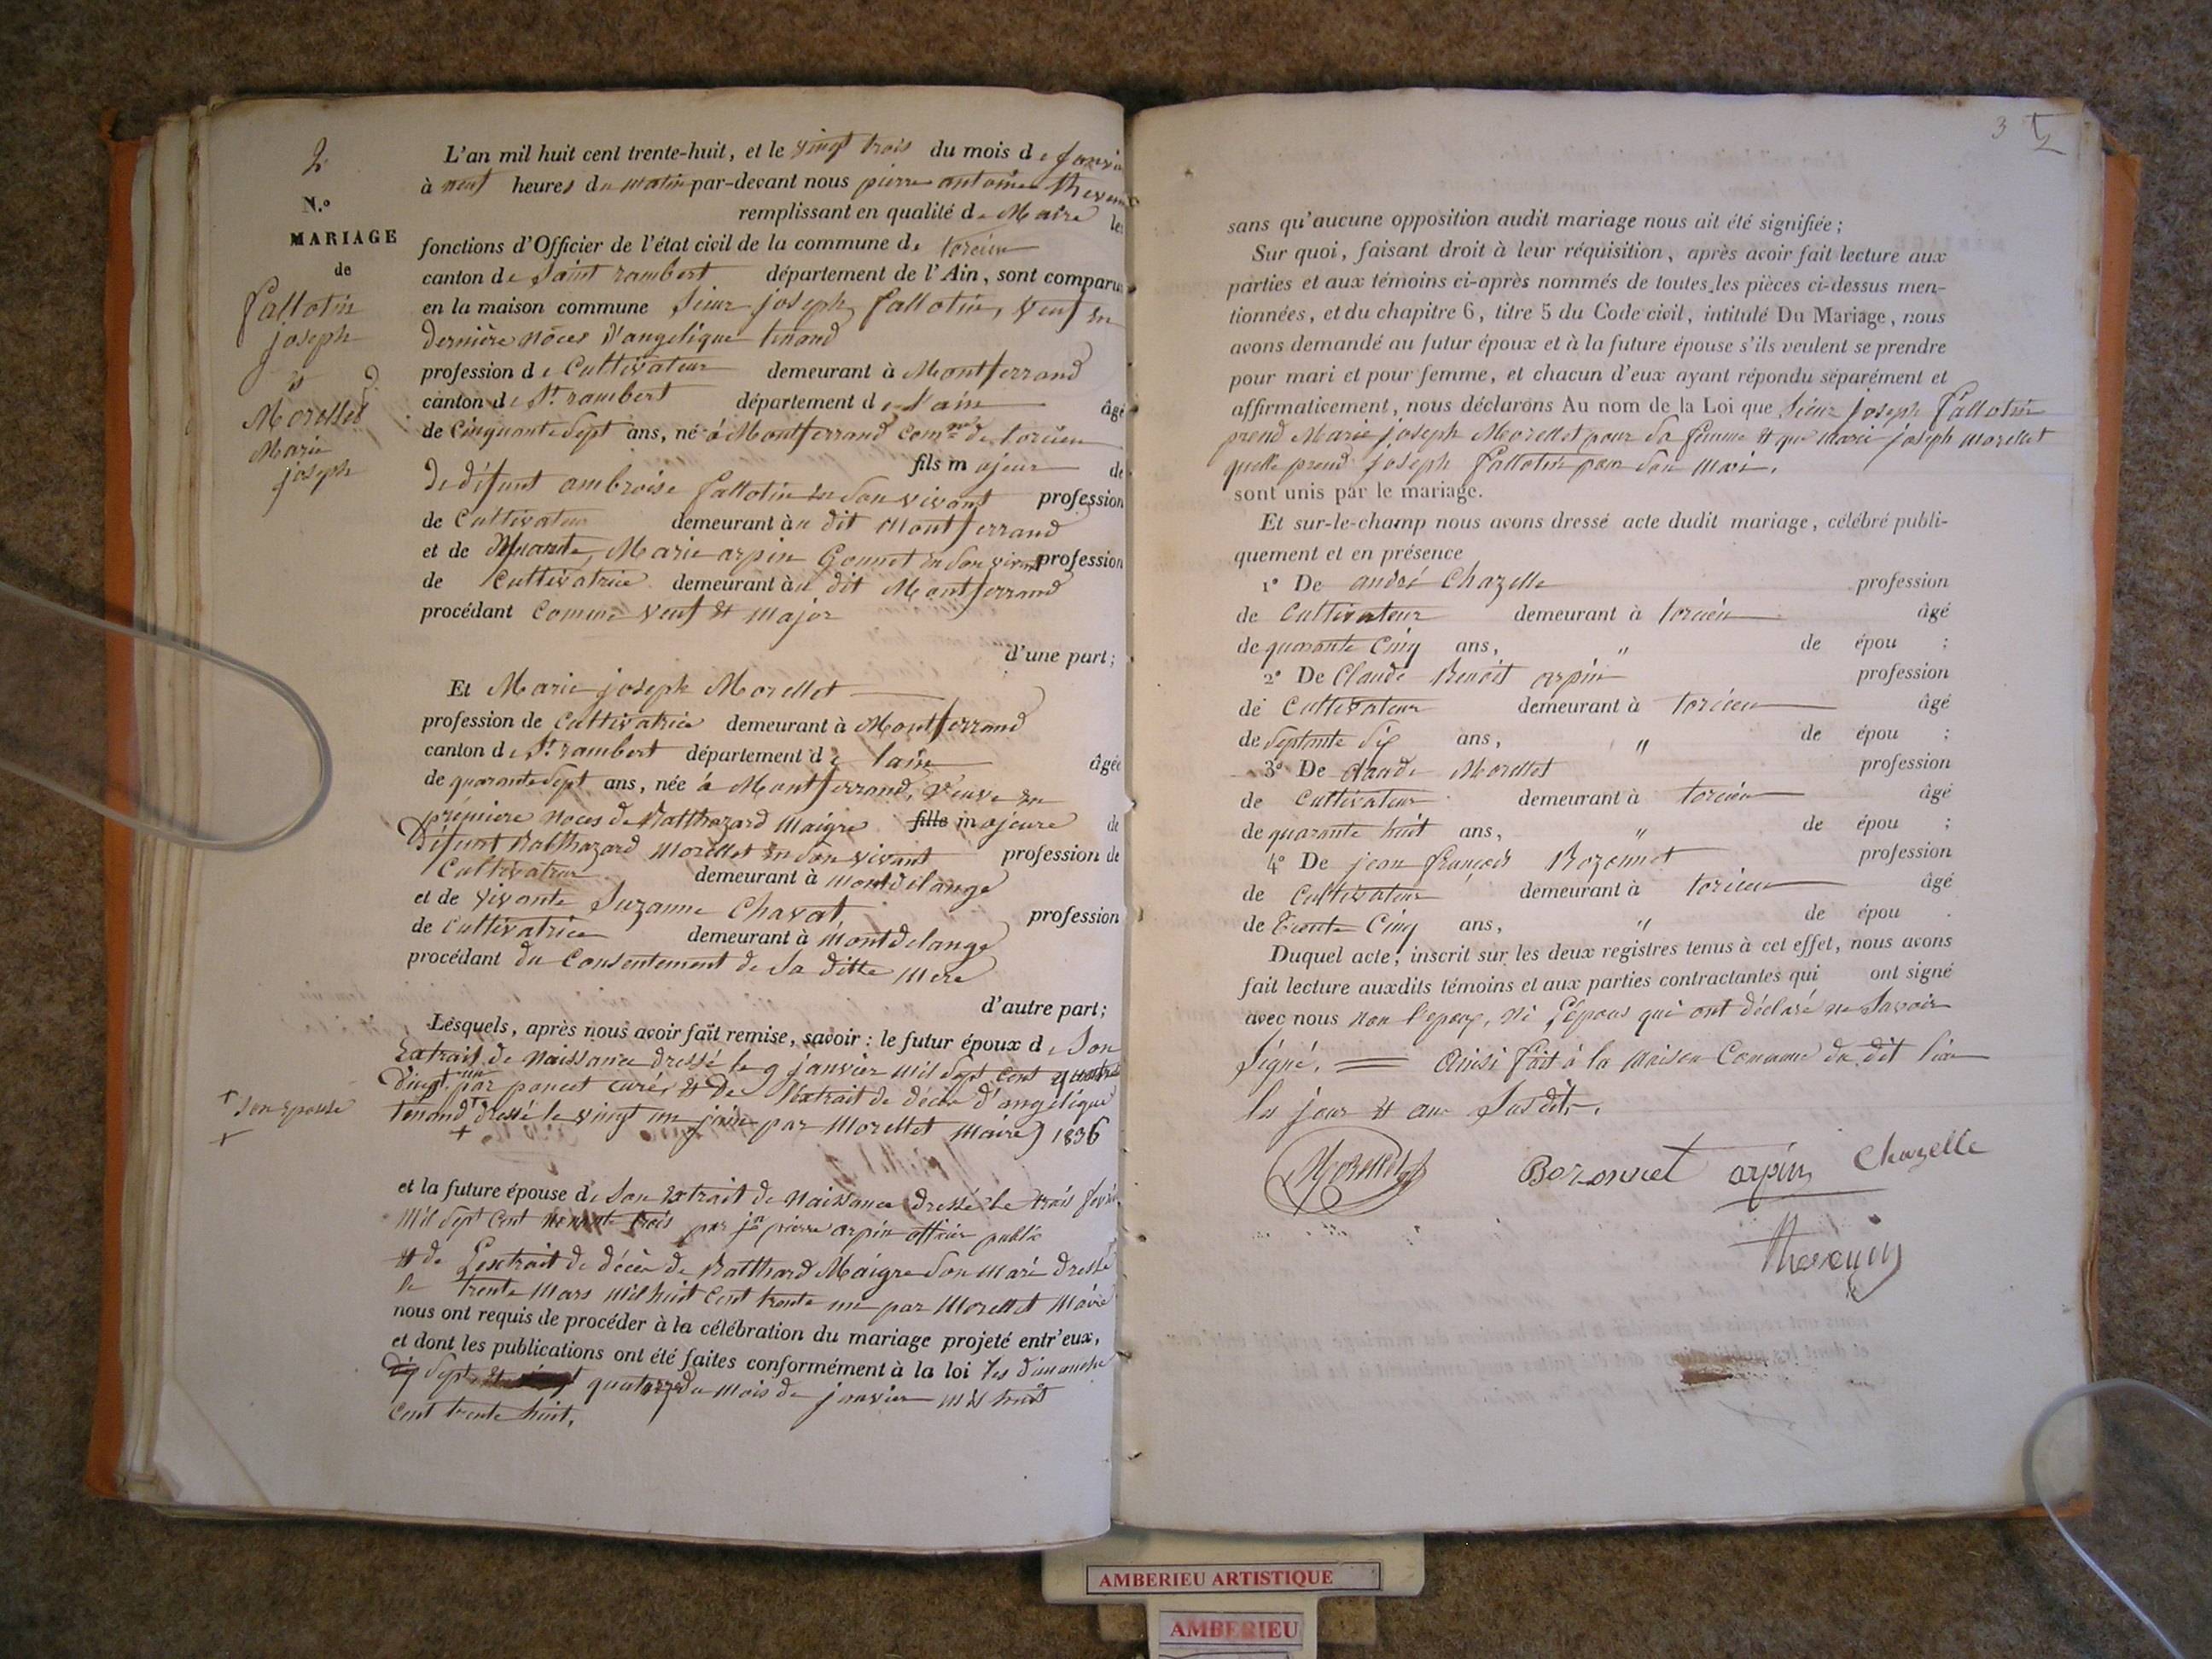 2
N.o
MARIAGE
de
fallotin
joseph
et
Morellet
Marie
joseph
L'an mil huit cent trente-huit, et le vingt trois du mois de janvier
à neuf heures du matin par-devant nous pierre antoine thevenin
remplissant en qualité de Maire les
fonctions d'Officier de l'état civil de la commune de torcieu
canton de Saint rambert département de l'Ain, sont comparus
en la maison commune Sieur joseph fallotin, veuf en
dernière nôces d'angelique tenand
profession de Cultivateur demeurant à Montferrand
canton de St. rambert département de l'ain âgé
de Cinquante Sept ans, né à Montferrand comne de torcieu
fils majeur de
De défunt ambroise fallotin en Son vivant profession
de Cultivateur demeurant au dit Montferrand
et de défuante, Marie arpin Gonnet en Son vivant profession
de Cultivatrice demeurant au dit Montferrand
procédant comme veuf et major
d'une part;
Et Marie joseph Morellet
profession de Cultivatrice demeurant à Montferrand
canton de St. rambert département de lain âgée
de quarante Sept ans, née à Montferrand, veuve en
première noces de Balthazard Maigre fille majeure de
Défunt Balthazard Morellet en Son vivant profession de
Cultivateur demeurant à Montdelange
et de vivante Suzanne Chavat, profession
de Cultivatrice demeurant à Montdelange
procédant du Consentement de Sa ditte Mere
d'autre part;
Lesquels, après nous avoir fait remise, savoir: le futur époux de Son
Extrait de Naissance dressé le 9 janvier mil Sept Cent quatre
vingt un par poncet curé, et De l'éxtrait de décès d'angélique
tenand + dressé le vingt un juin par Morellet Maire 1836
+ Son épouse
+
et la future épouse de Son Extrait de Naissance dressé le trois fevrier
Mil Sept Cent Nonante trois par jn pierre arpin officier public
et de L'extrait de décès de Balthard Maigre Son Mari dressé
le trente Mars Mil huit Cent trente un par Morellet Maire
nous ont requis de procéder à la célébration du mariage projeté entr'eux,
et dont les publications ont été faites conformément à la loi les dimanche
Sept et quatorze du Mois de janvier mil huit
Cent trente huit.
3
2
sans qu'aucune opposition audit mariage nous ait été signifiée;
Sur quoi, faisant droit à leur réquisition, après avoir fait lecture aux
parties et aux témoins ci-après nommés de toutes les pièces ci-dessus men-
tionnées, et du chapitre 6, titre 5 du Code civil, intitulé Du Mariage, nous
avons demandé au futur époux et à la future épouse s'ils veulent se prendre
pour mari et pour femme, et chacun d'eux ayant répondu séparément et
affirmativement, nous déclarons Au nom de la Loi que Sieur joseph fallotin
prend Marie joseph Morellet pour Sa femme et que Marie joseph Morellet
quelle prend joseph fallotin pour Son Mari.
sont unis par le mariage.
Et sur-le-champ nous avons dressé acte dudit mariage, célébré publi-
quement et en présence
1o De andré Chazelle profession
de Cultivateur demeurant à torcieu âgé
de quarante Cinq ans, " de épou ;
2o De Claude Benoit arpin profession
de Cultivateur demeurant à torcieu âgé
de Septante Six ans, " de épou ;
3o De claude Morellet profession
de Cultivateur demeurant à torcieu âgé
de quarante huit ans, " de épou ;
4o De jean françois Bozonnet profession
de Cultivateur demeurant à torcieu âgé
de trente Cinq ans, " de épou .
Duquel acte, inscrit sur les deux registres tenus à cet effet, nous avons
fait lecture auxdits témoins et aux parties contractantes qui ont signé
avec nous non l'epoux, ni L'épous qui ont déclaré ne Savoir
Signé. Ainsi fait à la Maison Commune du dit lieu
les jour et an Susdits.
Morellet Bozonnet arpin Chazelle
thevenin
AMBERIEU ARTISTIQUE
AMBERIEU